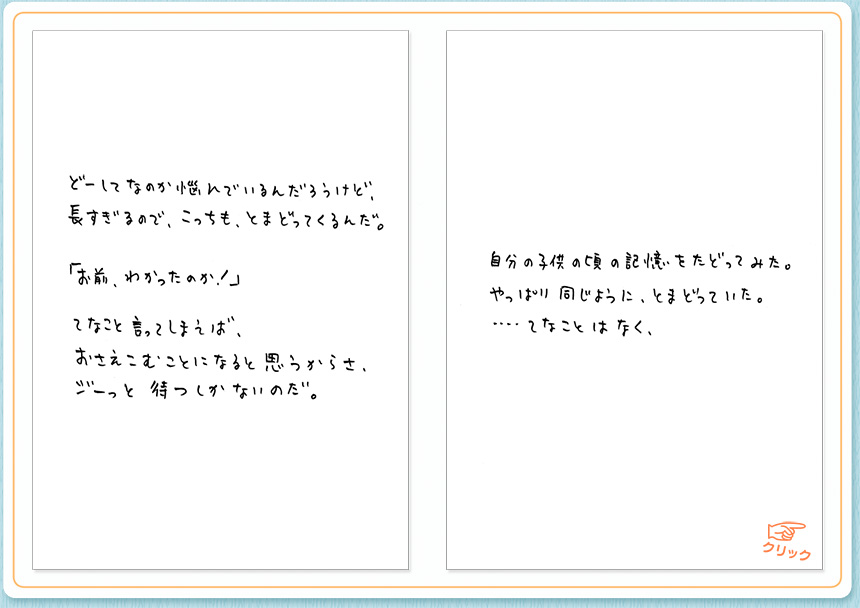 どーしてなのか悩んでいるんだろうけど、
長すぎるので、こっちも、とまどってくるんだ。
「お前、わかったのか!」
てなこと言ってしまえば、
おさえこむことになると思うからさ、
ジーっと待つしかないのだ。
自分の子供の頃の記憶をたどってみた。
やっぱり同じように、とまどっていた。
‥‥てなことはなく、
クリック